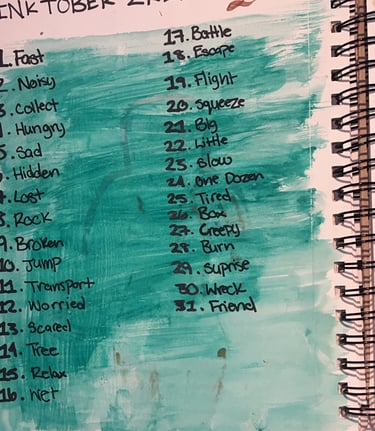 INKTOBER
1. Fast
2. Noisy
3. Collect
4. Hungry
5. Sad
6. Hidden
7. Lost
8. Rock
9. Broken
10. Jump
11. Transport
12. Worried
13. Scared
14. Tree
15. Relax
16. Wet
17. Battle
18. Escape
19. Flight
20. Squeeze
21. Big
22. Little
23. Slow
24. One Dozen
25. Tired
26. Box
27. Creepy
28. Burn
29. Suprise
30. Wreck
31. Friend